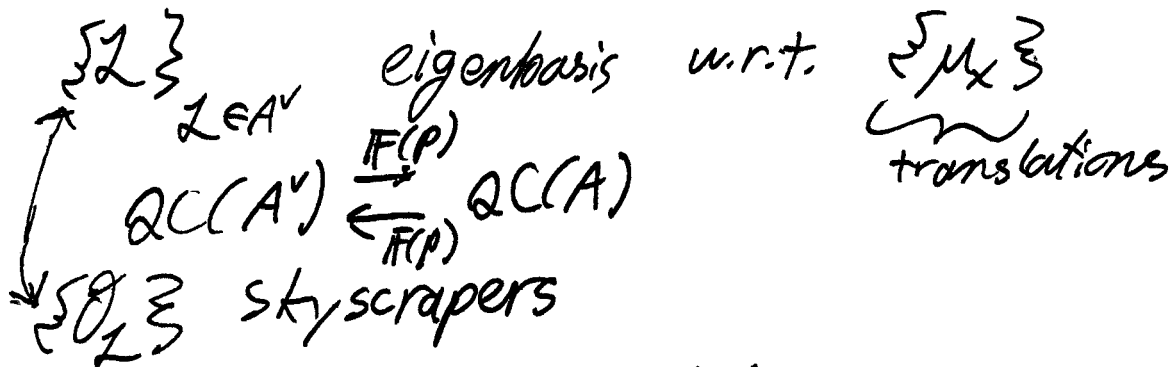 {ℒ}_{ℒ∈A^∨} eigenbasis w.r.t. {μ_x}
translations
QC(A^∨) ⇄ QC(A)
F(P)
F(P)
{O_ℒ} skyscrapers